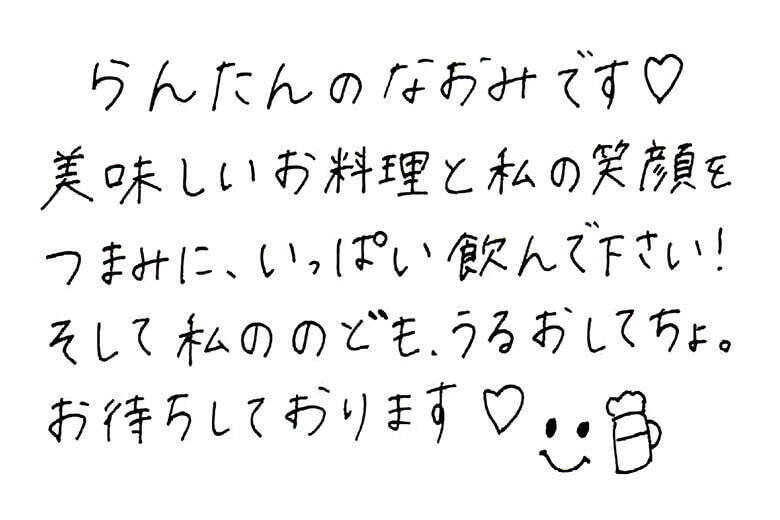 らんたんのなおみです♡
美味しいお料理と私の笑顔を
つまみに、いっぱい飲んで下さい!
そして私ののども、うるおしてちょ。
お待ちしております♡